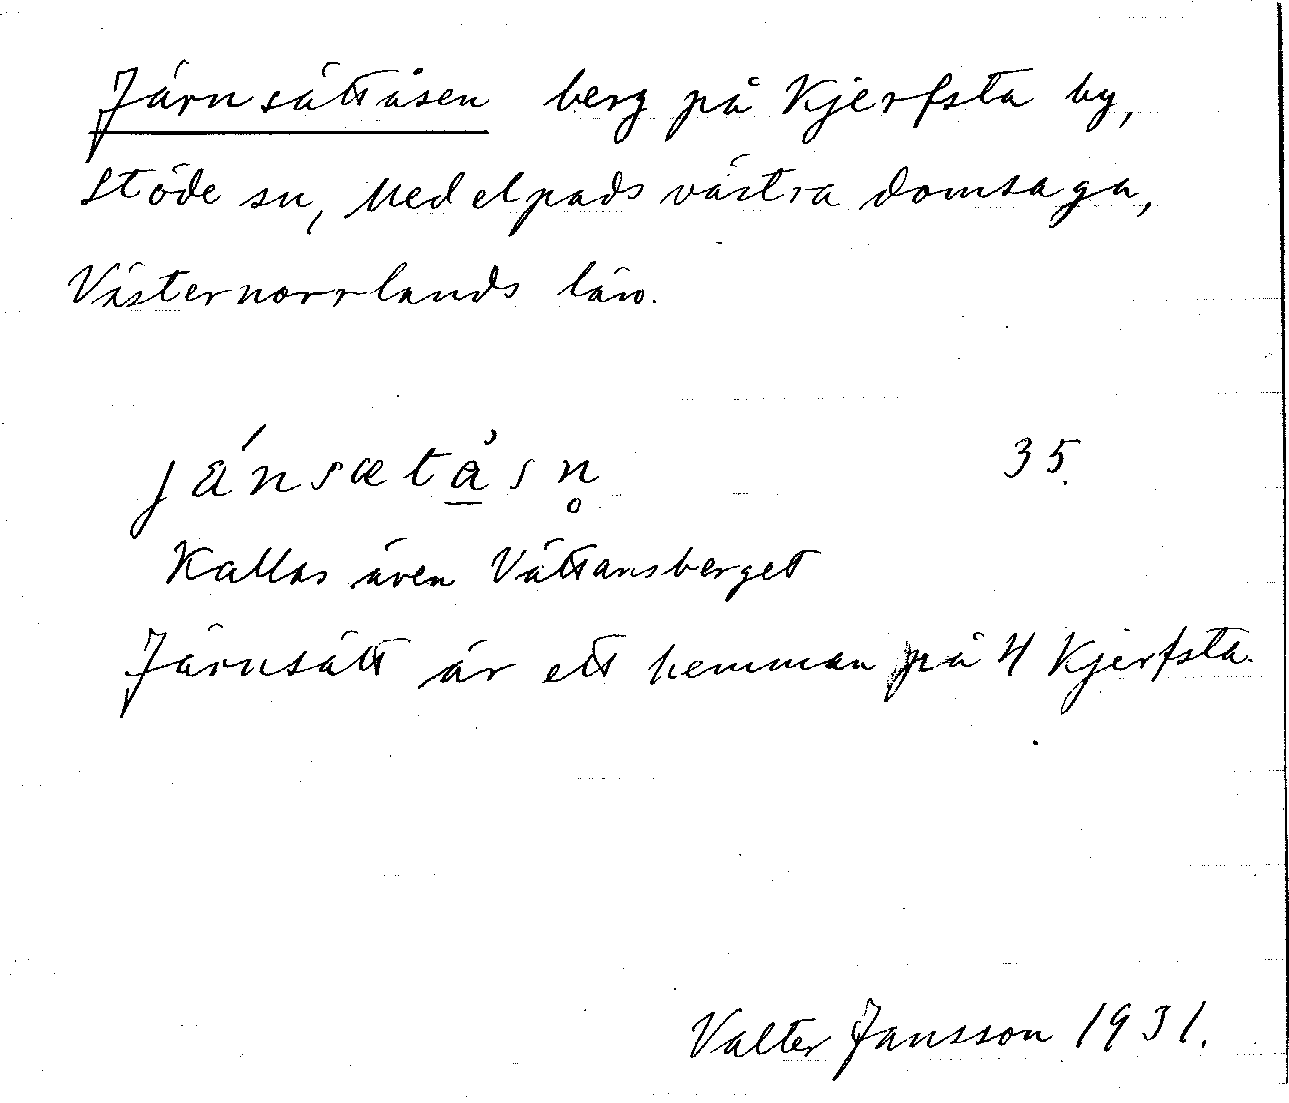 Järnsättåsen berg på Kjerfsta by,
Stöde sn, Medelpads västra domsaga,
Västernorrlands län.
jä́nsætå̠sn̥ 35.
Kallas även Vättansberget
Järnsätt är ett hemman på 4 Kjerfsta.
Valter Jansson 1931.